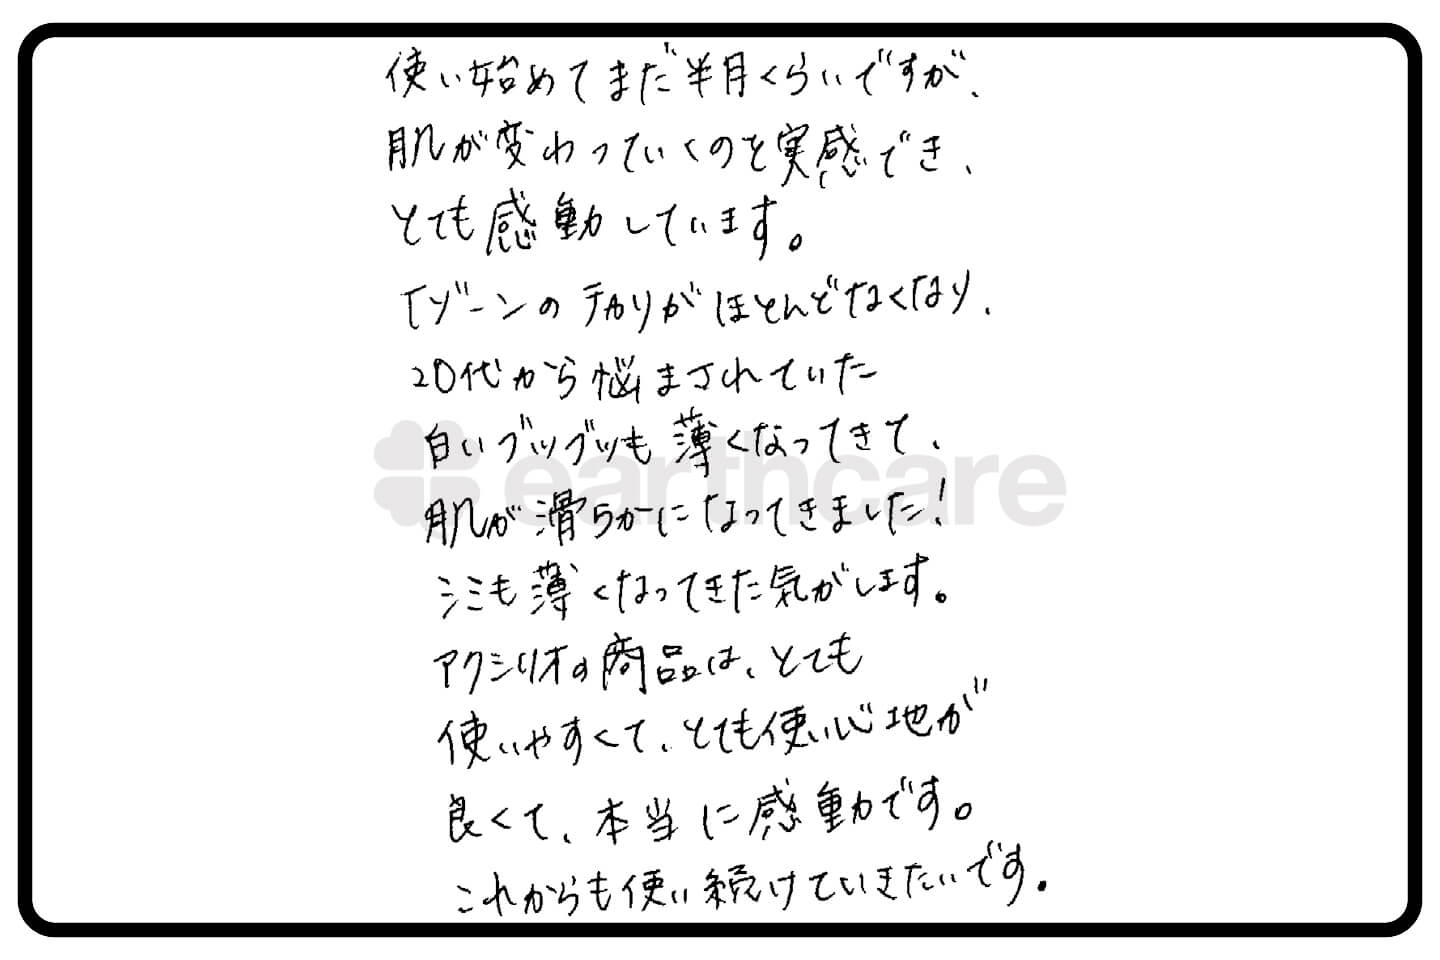 使い始めてまだ半月くらいですが、
肌が変わっていくのを実感でき、
とても感動しています。
Tゾーンのテカリがほとんどなくなり、
20代から悩まされていた
白いブツブツも薄くなってきて、
earthcare
肌が滑らかになってきました!
シミも薄くなってきた気がします。
アクシリオの商品は、とても
使いやすくて、とても使い心地が
良くて、本当に感動です。
これからも使い続けていきたいです。